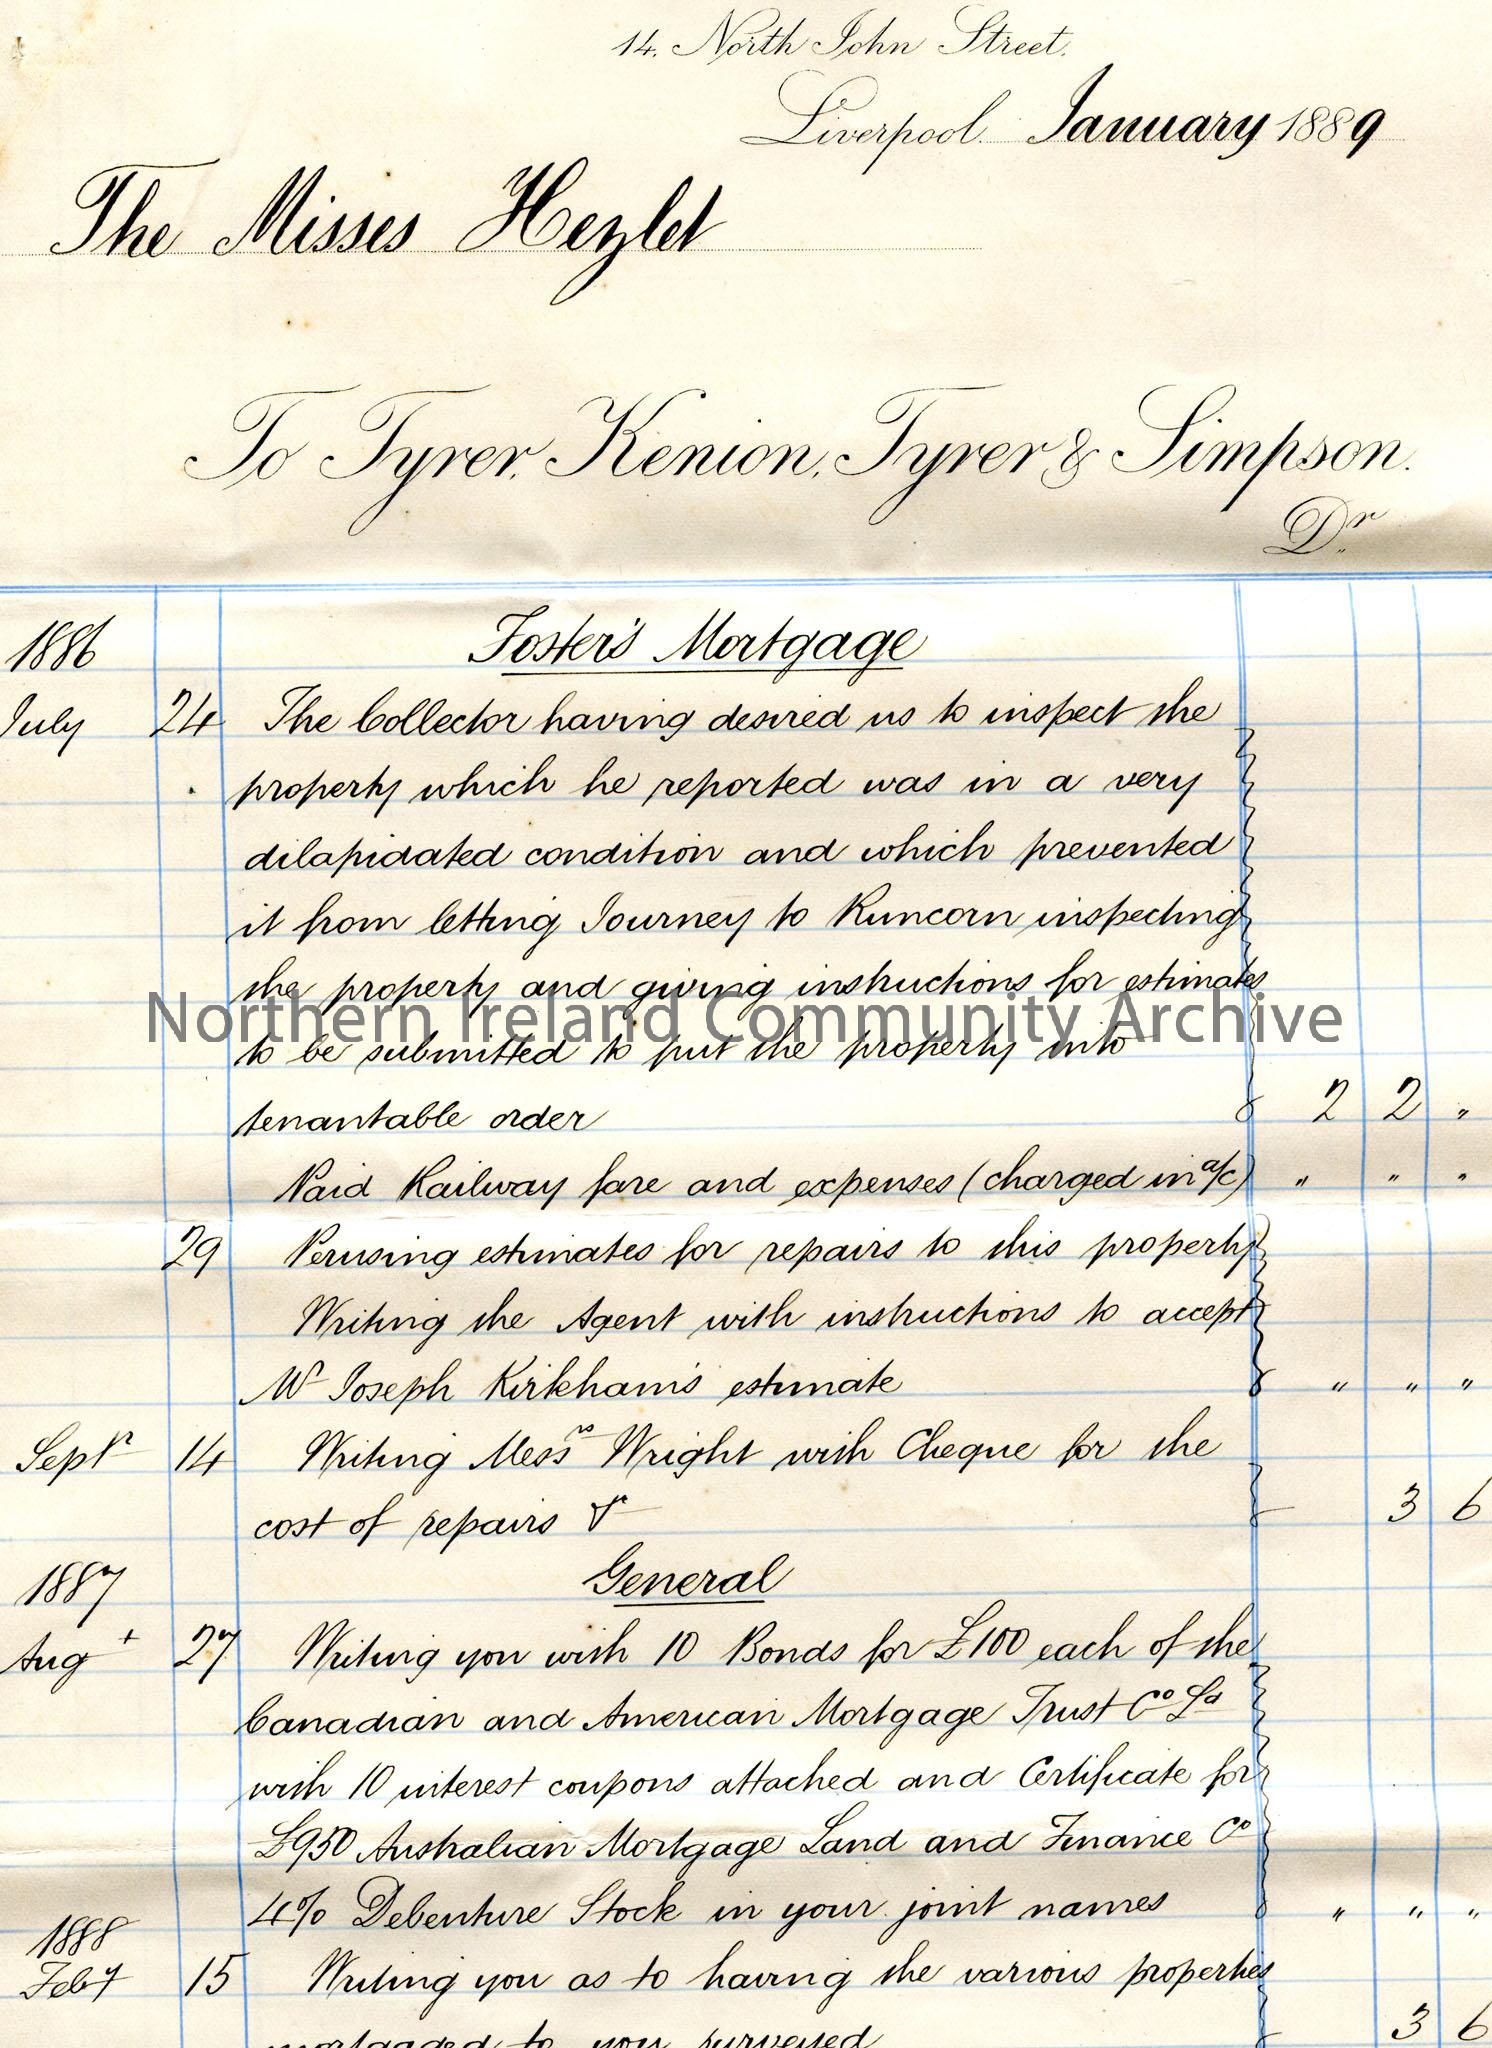 14. North John Street.
Liverpool. January 1889
The Misses Hezlet
To Tyrer, Kenion, Tyrer & Simpson.
Dr.
1886 Foster's Mortgage
July 24 The Collector having desired us to inspect the
property which he reported was in a very
dilapidated condition and which prevented
it from letting Journey to Runcorn inspecting
the property and giving instructions for estimates
Northern Ireland Community Archive
to be submitted to put the property into
tenantable order 2 2 "
Paid Railway fare and expenses (charged in a/c) " " "
29 Perusing estimates for repairs to this property
Writing the Agent with instructions to accept
Mr Joseph Kirkham's estimate " " "
Septr 14 Writing Messrs Wright with Cheque for the
cost of repairs &c 3 6
1887 General
Augt 27 Writing you with 10 Bonds for £100 each of the
Canadian and American Mortgage Trust Co Ld
with 10 interest coupons attached and Certificate for
£950 Australian Mortgage Land and Finance Co
4% Debenture Stock in your joint names " " "
1888
Feby 15 Writing you as to having the various properties
mortgaged to you surveyed 3 6